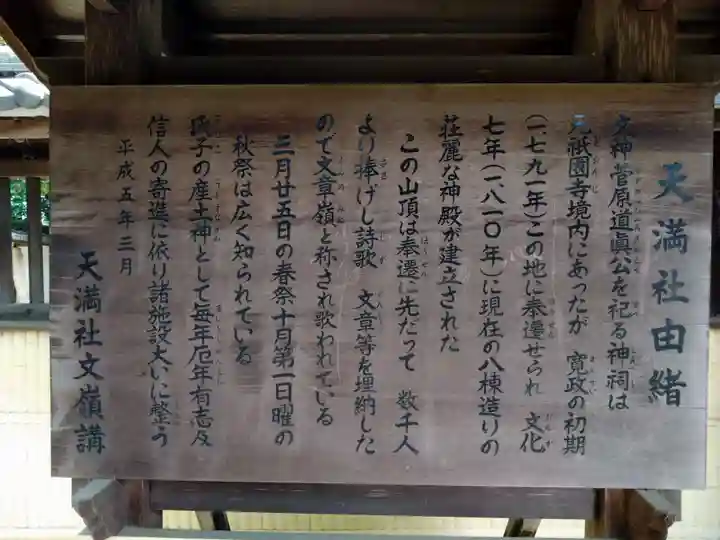 天満社由緒
文神菅原道眞公を祀る神祠は
元祇園寺境内にあったが 寛政の初期
(一、七九一年)この地に奉遷せられ 文化
七年(一、八一〇年)に現在の八棟造りの
荘麗な神殿が建立された
この山頂は奉遷に先だって 数千人
より捧げし詩歌 文章等を埋納した
ので文章嶺と称され歌われている
三月廿五日の春祭十月第一日曜の
秋祭は広く知られている
氏子の産土神として毎年厄年有志及
信人の寄進に依り諸施設大いに整う
平成五年三月
天満社文嶺講